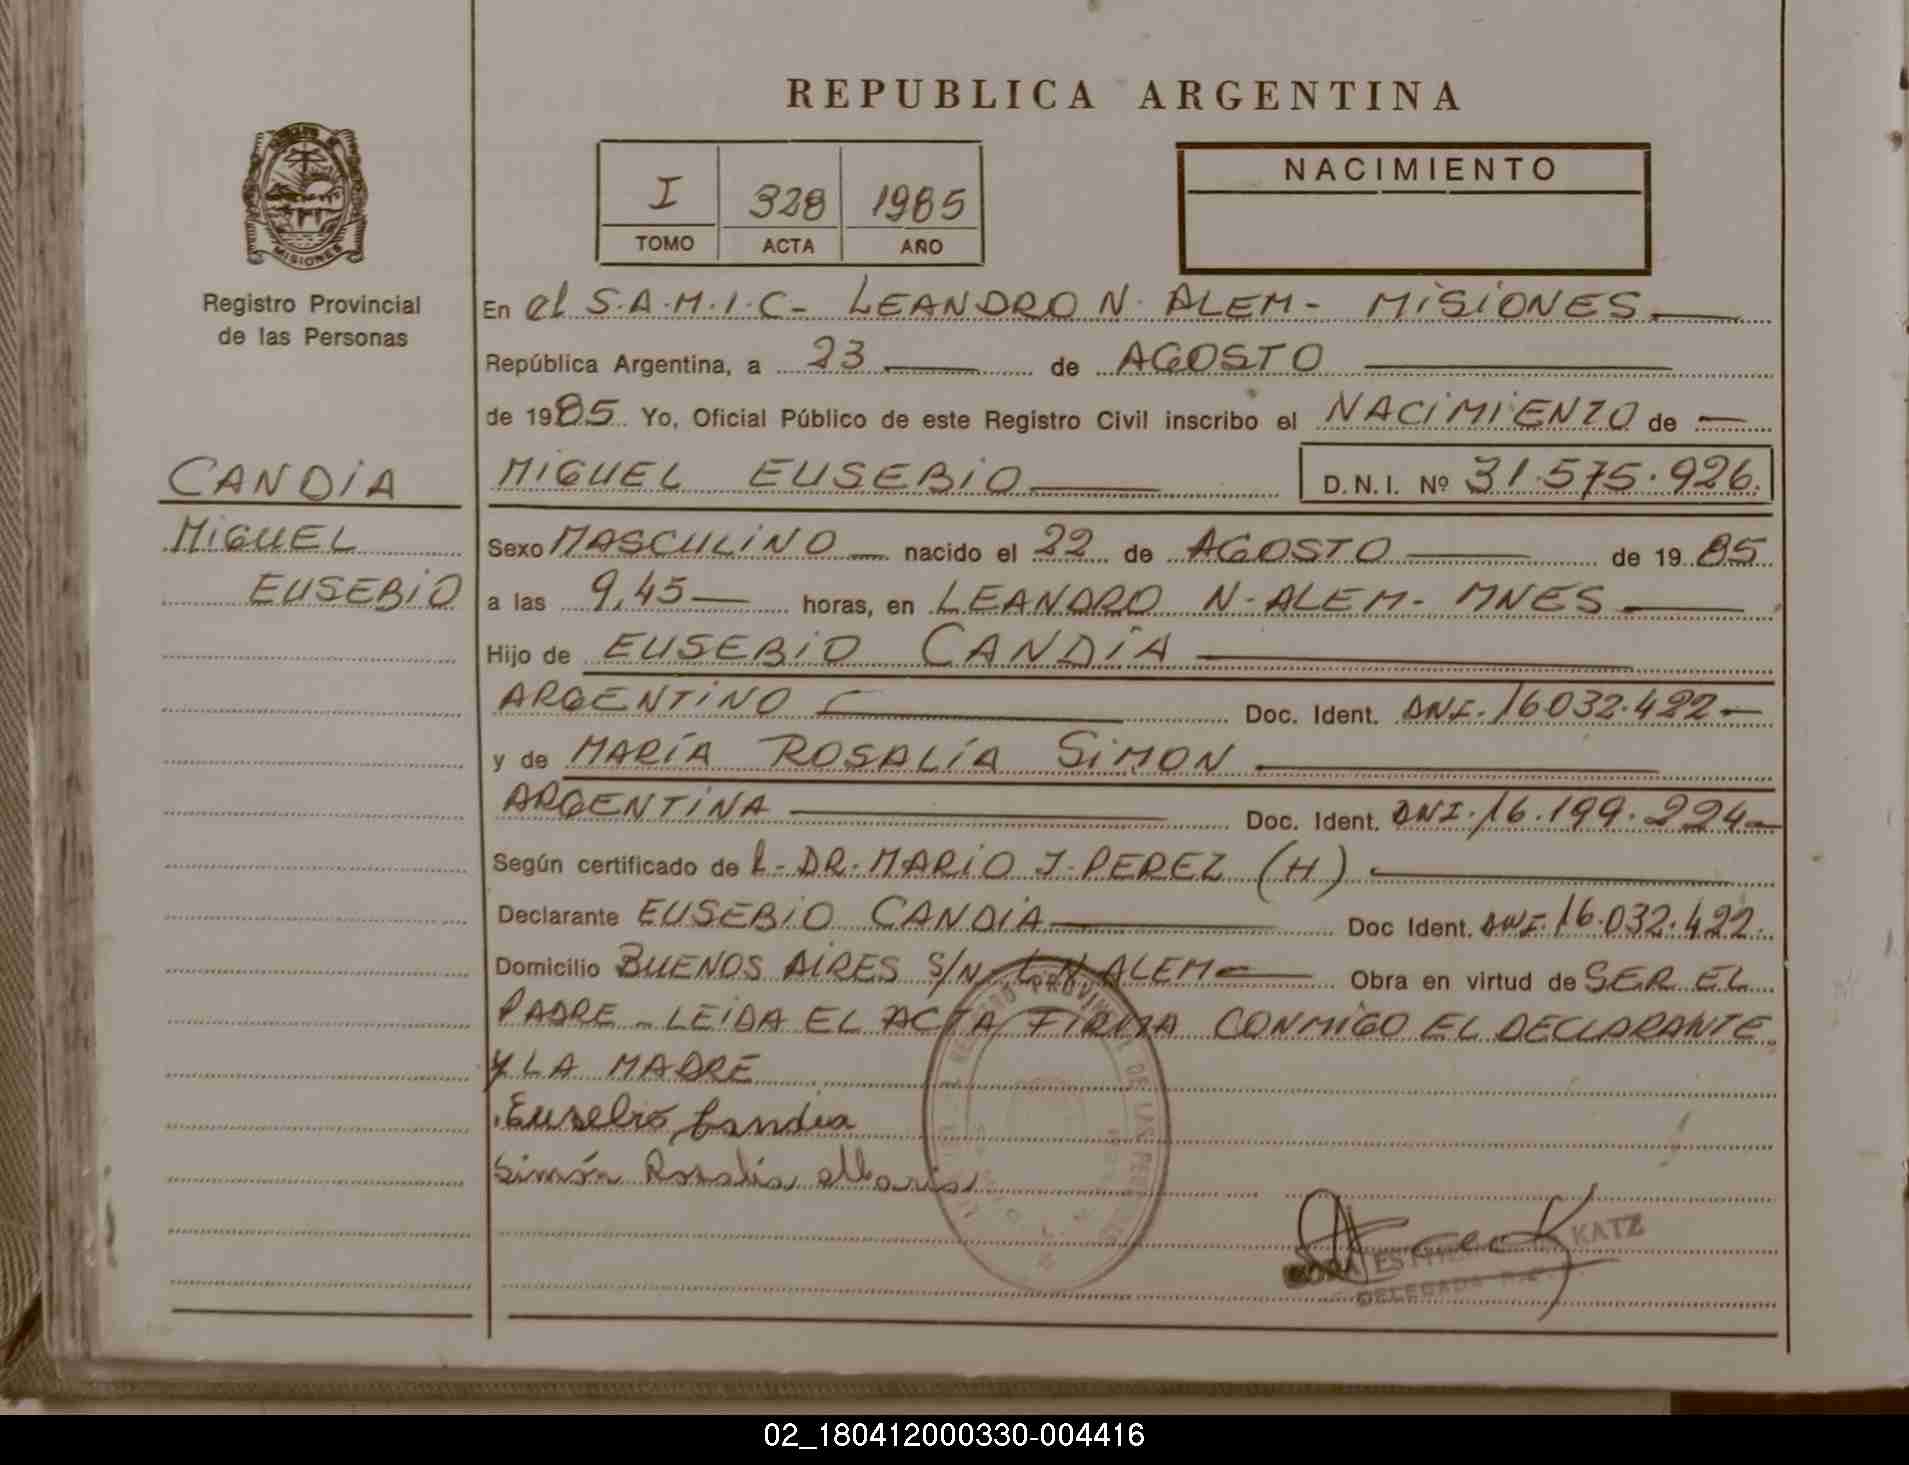 REPUBLICA ARGENTINA
I 328 1985
TOMO ACTA AÑO
NACIMIENTO
MISIONES
Registro Provincial
de las Personas
CANDIA
MIGUEL
EUSEBIO
En el S.A.M.I.C- LEANDRO N. ALEM- MISIONES
República Argentina, a 23 de AGOSTO
de 1985 Yo, Oficial Público de este Registro Civil inscribo el NACIMIENTO de
MIGUEL EUSEBIO D.N.I. Nº 31.575.926.
Sexo MASCULINO nacido el 22 de AGOSTO de 1985
a las 9,45 horas, en LEANDRO N-ALEM- MNES
Hijo de EUSEBIO CANDÍA
ARGENTINO Doc. Ident. DNI. 16.032.422-
y de MARÍA ROSALÍA SIMON
ARGENTINA Doc. Ident. DNI. 16.199.224-
Según certificado de L- DR. MARIO J. PEREZ (H)
Declarante EUSEBIO CANDIA Doc Ident. DNI. 16.032.422.
Domicilio BUENOS AIRES S/N- L.N.ALEM Obra en virtud de SER EL
PADRE - LEIDA EL ACTA FIRMA CONMIGO EL DECLARANTE
Y LA MADRE
Eusebio Candia
Simón Rosalia Maria
REGISTRO PROVINCIAL DE LAS PERSONAS
KATZ
DELEGADA
02_180412000330-004416